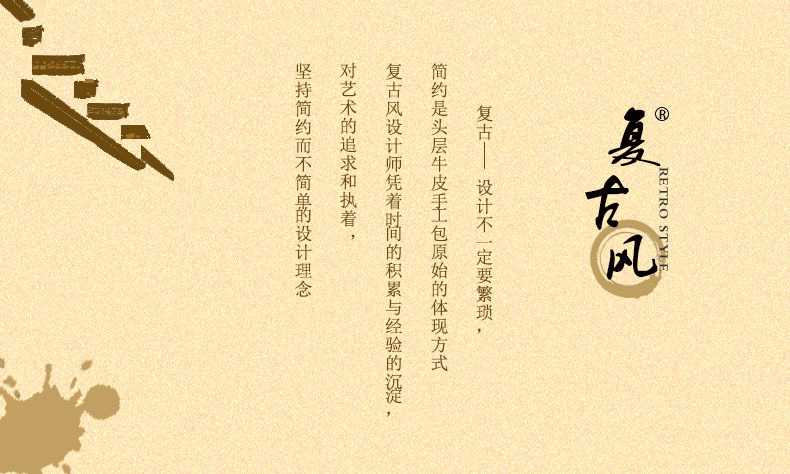 复古风®
RETRO STYLE
复古——设计不一定要繁琐，
简约是头层牛皮手工包原始的体现方式
复古风设计师凭着时间的积累与经验的沉淀，
对艺术的追求和执着，
坚持简约而不简单的设计理念